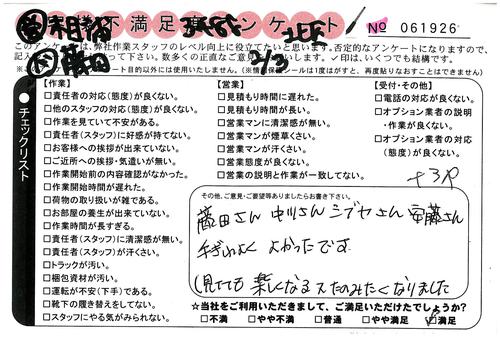 不満足度アンケート No 061926
このアンケートは、弊社作業スタッフのレベル向上に役立てたいと思います。否定的なアンケートになりますので、
記入 数多くの正直なご意見 い致します。✓印は、いくつでも結構です。
ート目的以外には使用いたしません。(※情報保護シールは1度はがすと、再度貼りなおすことはできません)
チェックリスト
【作業】
□責任者の対応(態度)が良くない。
□他のスタッフの対応(態度)が良くない。
□作業を見ていて不安がある。
□責任者(スタッフ)に好感が持てない。
□お客様への挨拶が出来ていない。
□ご近所への挨拶・気遣いが無い。
□作業開始前の内容確認がなかった。
□作業開始時間が遅れた。
□荷物の取り扱いが雑である。
□お部屋の養生が出来ていない。
□作業時間が長すぎる。
□責任者(スタッフ)に清潔感が無い。
□責任者(スタッフ)が汗くさい。
□トラックが汚い。
□梱包資材が汚い。
□運転が不安(下手)である。
□靴下の履き替えをしてない。
□スタッフにやる気がみられない。
【営業】
□見積もり時間に遅れた。
□見積もり時間が長い。
□営業マンに清潔感が無い。
□営業マンが煙草くさい。
□営業マンが汗くさい。
□営業態度が良くない。
□営業の説明と作業が一致してない。
【受付・その他】
□電話の対応が良くない。
□オプション業者の説明
・作業が良くない。
□オプション業者の対応
(態度)が良くない。
+3P
その他、ご意見・ご要望等ありましたらお書き下さい。
藤田さん 中川さん シブヤさん 安藤さん
手ぎわよく よかったです
見てても 楽しくなる またたのみたくなりました
☆当社をご利用いただきまして、ご満足いただけたでしょうか?
□不満 □やや不満 □普通 □やや満足 ☑満足